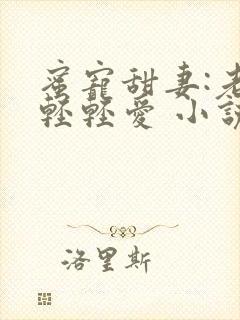 蜜寵甜妻:老
輕輕愛 小說
洛里斯